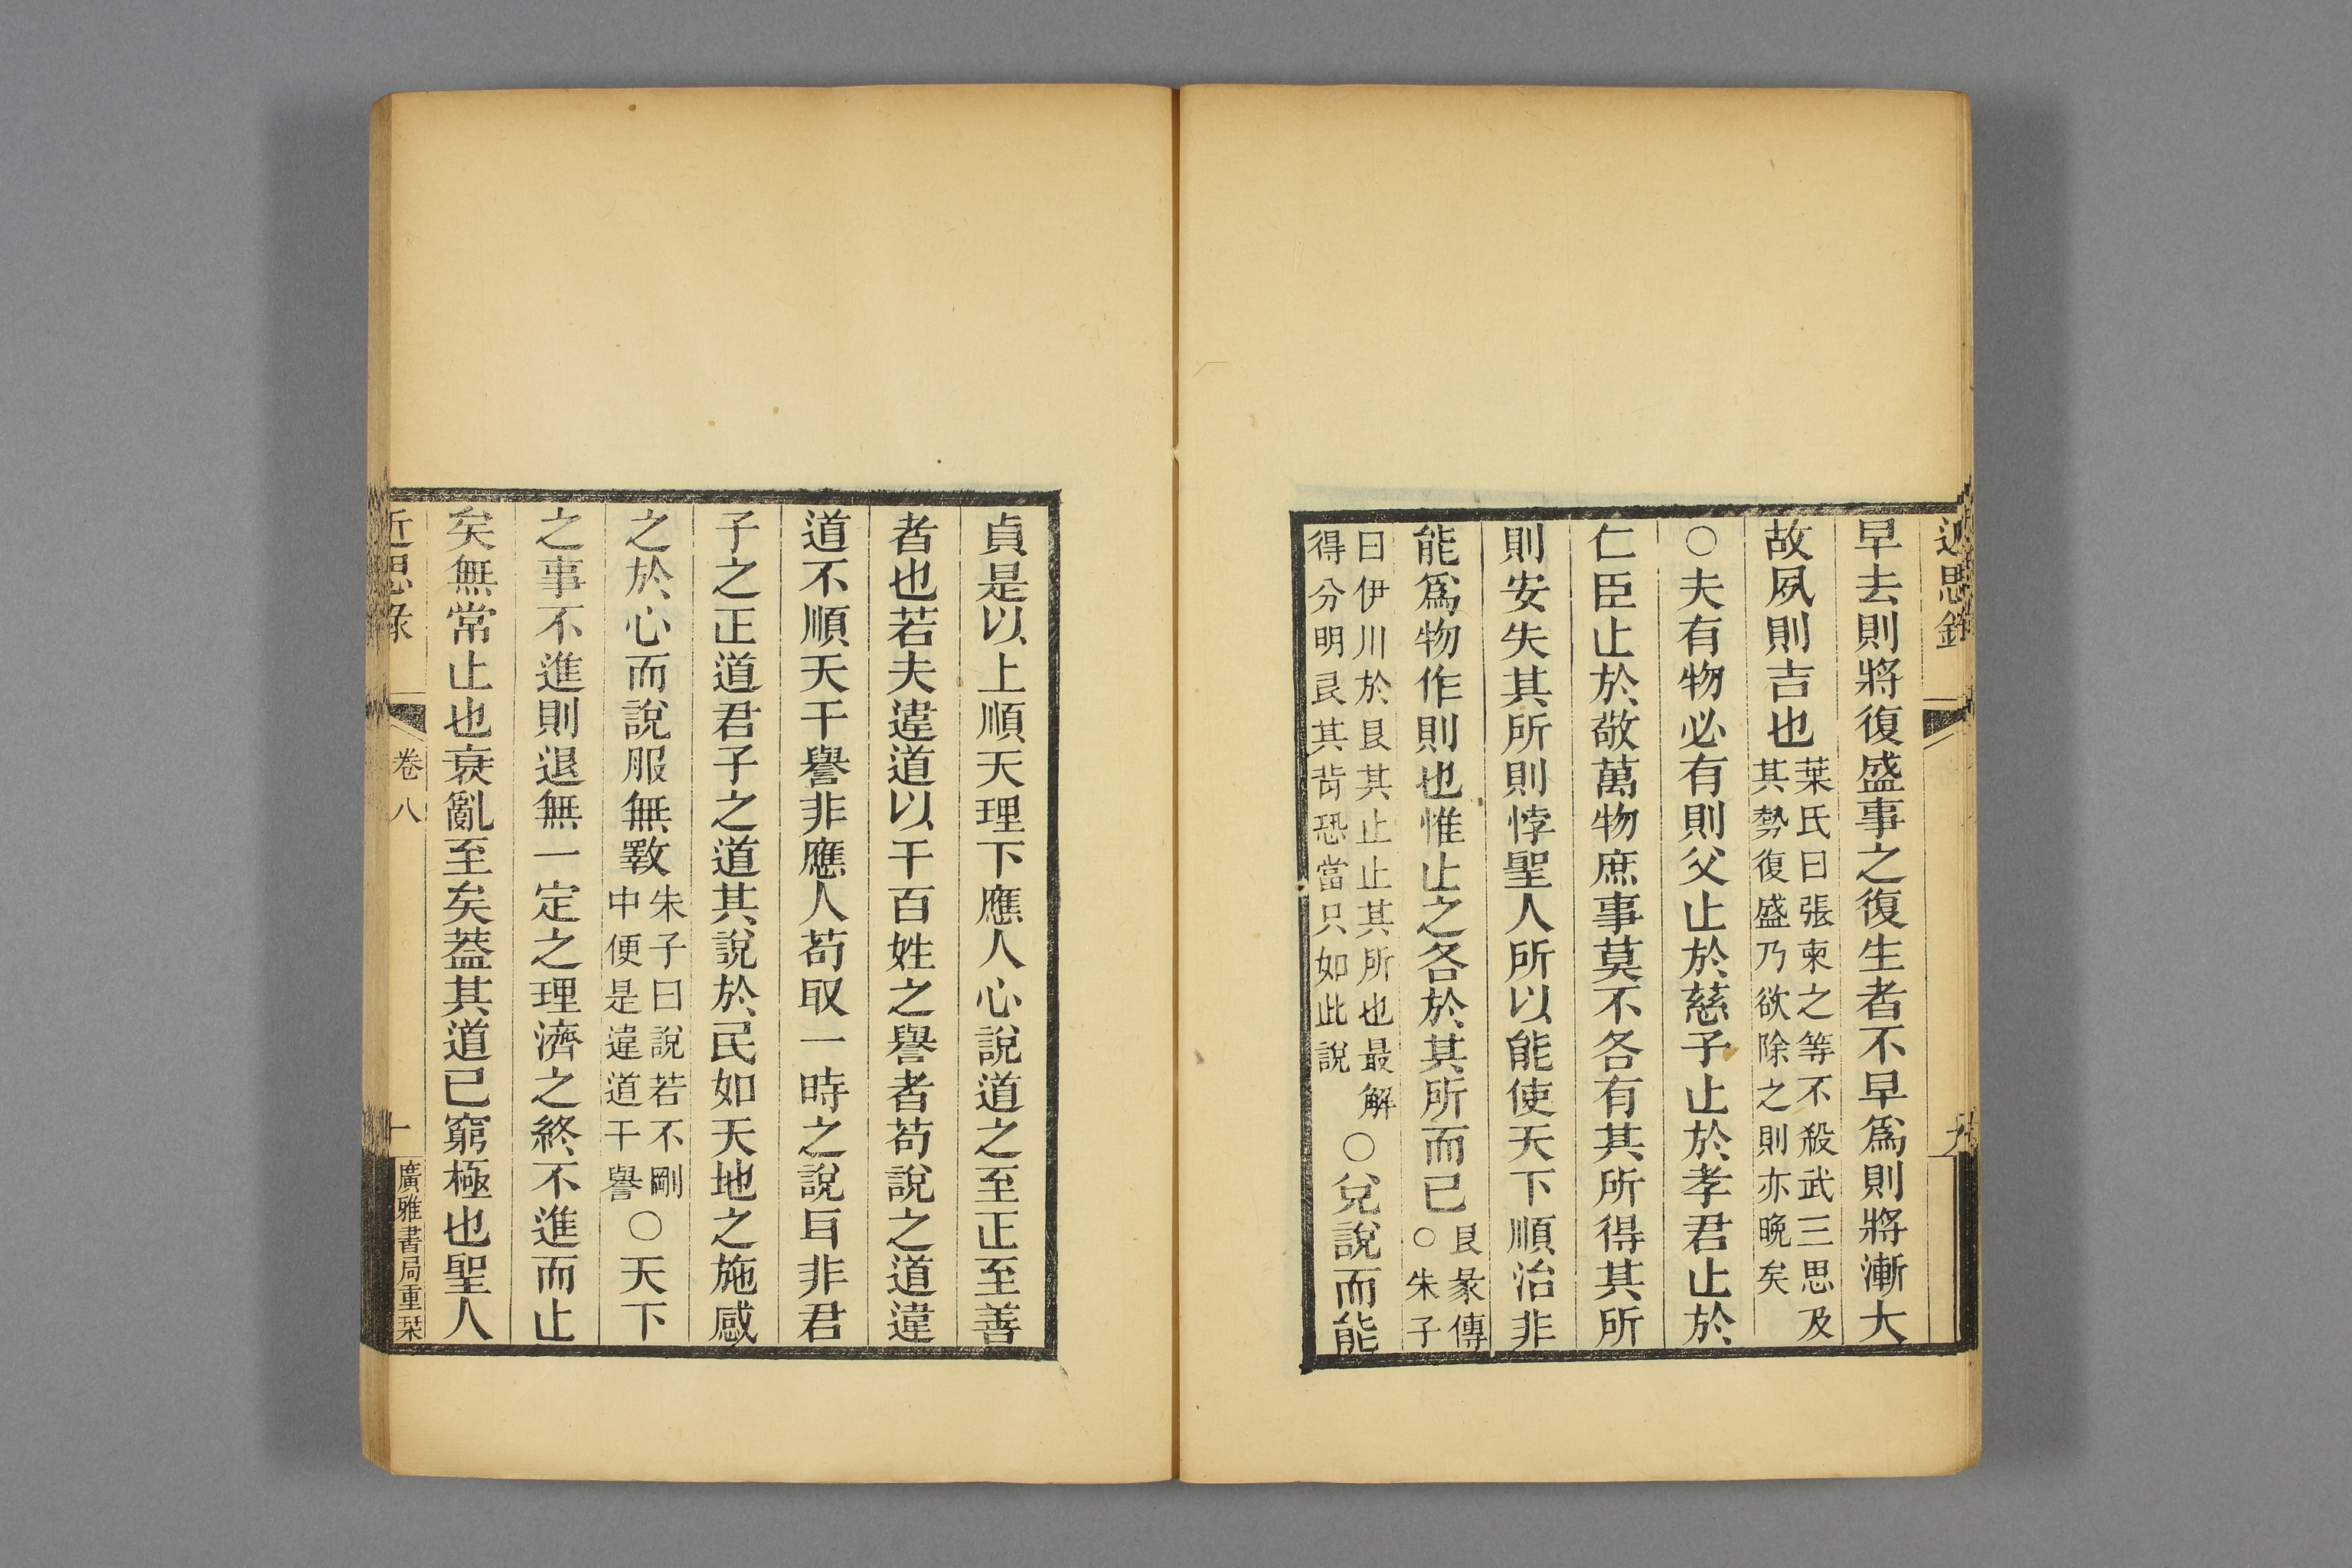 近思錄
九
早去則將復盛事之復生者不早爲則將漸大
故夙則吉也葉氏曰張柬之等不殺武三思及其勢復盛乃欲除之則亦晩矣
○夫有物必有則父止於慈子止於孝君止於
仁臣止於敬萬物庶事莫不各有其所得其所
則安失其所則悖聖人所以能使天下順治非
能爲物作則也惟止之各於其所而已艮彖傳○朱子
曰伊川於艮其止止其所也最解得分明艮其背恐當只如此說○兌說而能
貞是以上順天理下應人心說道之至正至善
者也若夫違道以干百姓之譽者苟說之道違
道不順天干譽非應人苟取一時之說耳非君
子之正道君子之道其說於民如天地之施感
之於心而說服無斁朱子曰說若不剛中便是違道干譽○天下
之事不進則退無一定之理濟之終不進而止
矣無常止也衰亂至矣葢其道已窮極也聖人
近思錄
卷八
十
廣雅書局重栞